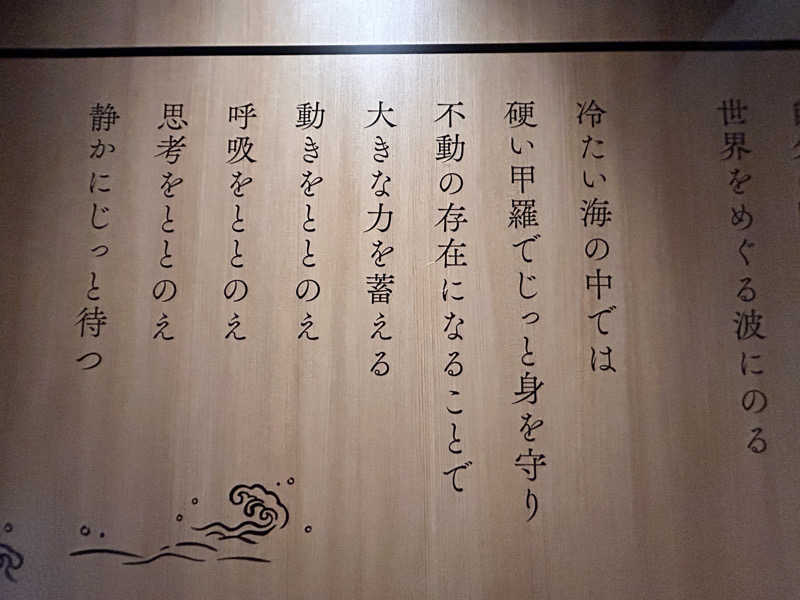 世界をめぐる波にのる
冷たい海の中では
硬い甲羅でじっと身を守り
不動の存在になることで
大きな力を蓄える
動きをととのえ
呼吸をととのえ
思考をととのえ
静かにじっと待つ